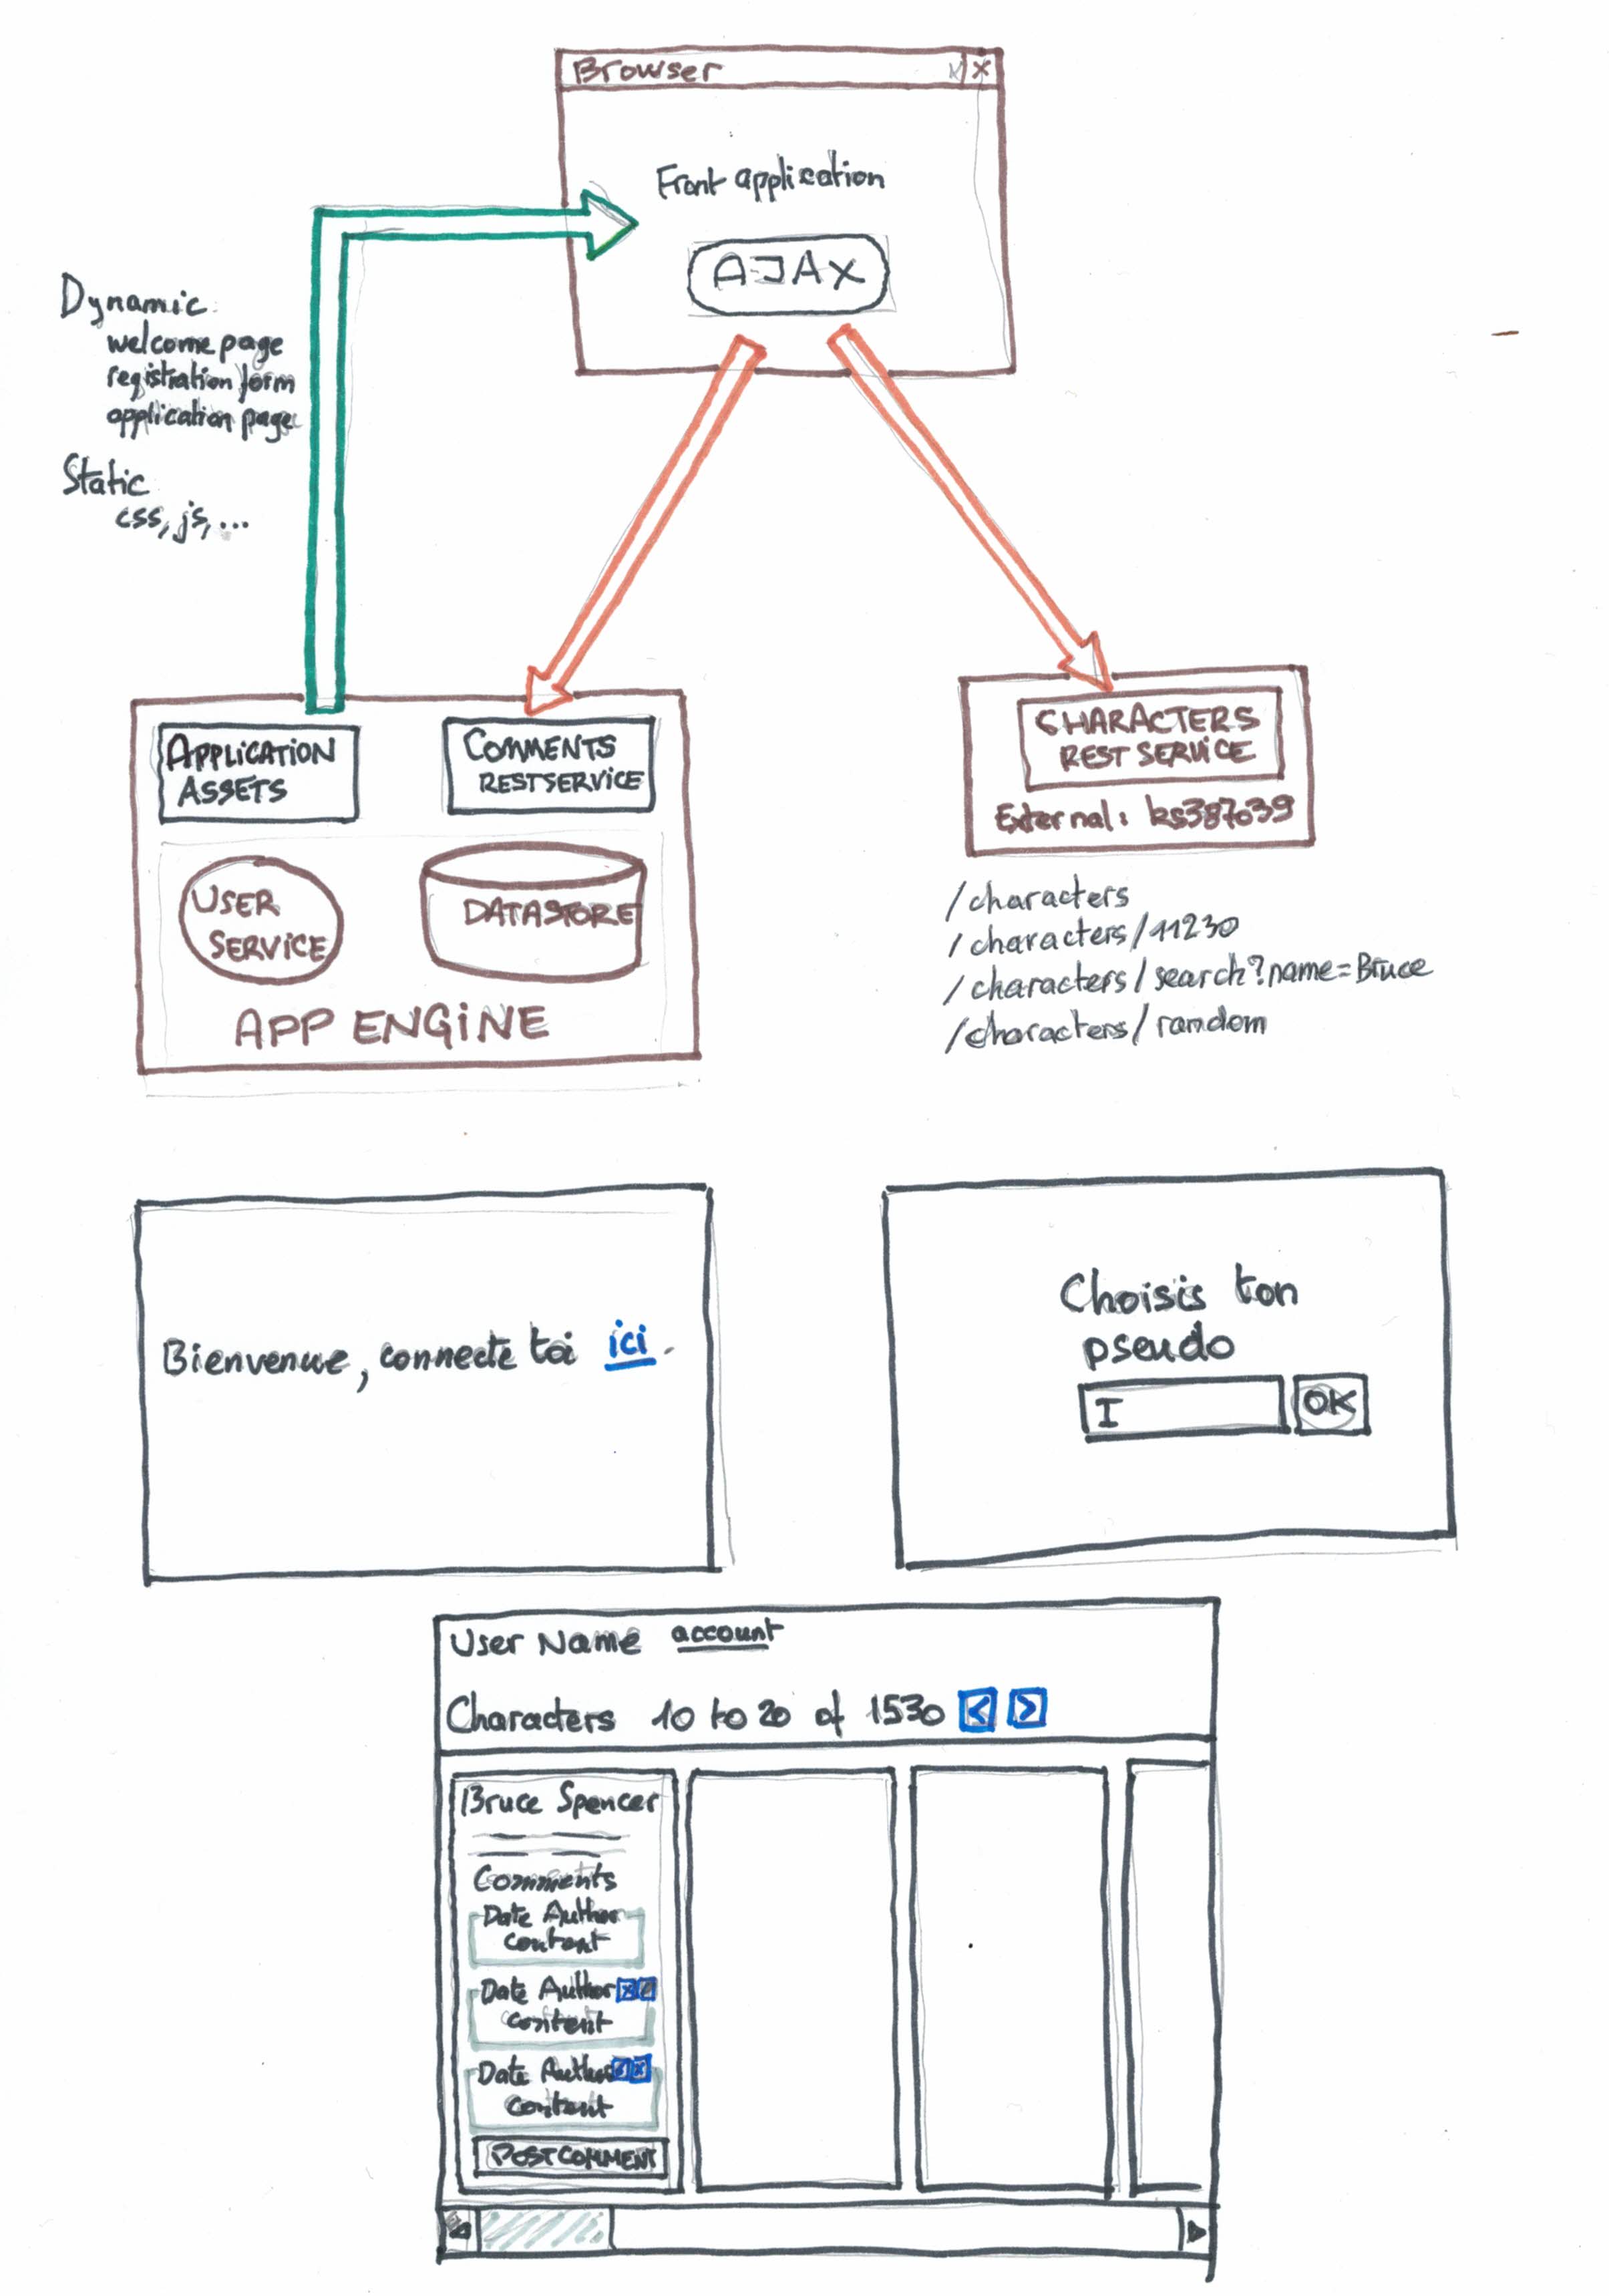 Browser X
Front application
AJAX
Dynamic
welcome page
registration form
application page
Static
css, js, ...
APPLICATION
ASSETS
COMMENTS
REST SERVICE
USER
SERVICE
DATASTORE
APP ENGINE
CHARACTERS
REST SERVICE
External: ks387039
/characters
/characters/11230
/characters/search?name=Bruce
/characters/random
Bienvenue, connecte toi ici.
Choisis ton
pseudo
I OK
User Name account
Characters 10 to 20 of 1530 < >
Bruce Spencer
Comments
Date Author
Content
Date Author x
Content
Date Author x
Content
POST COMMENT